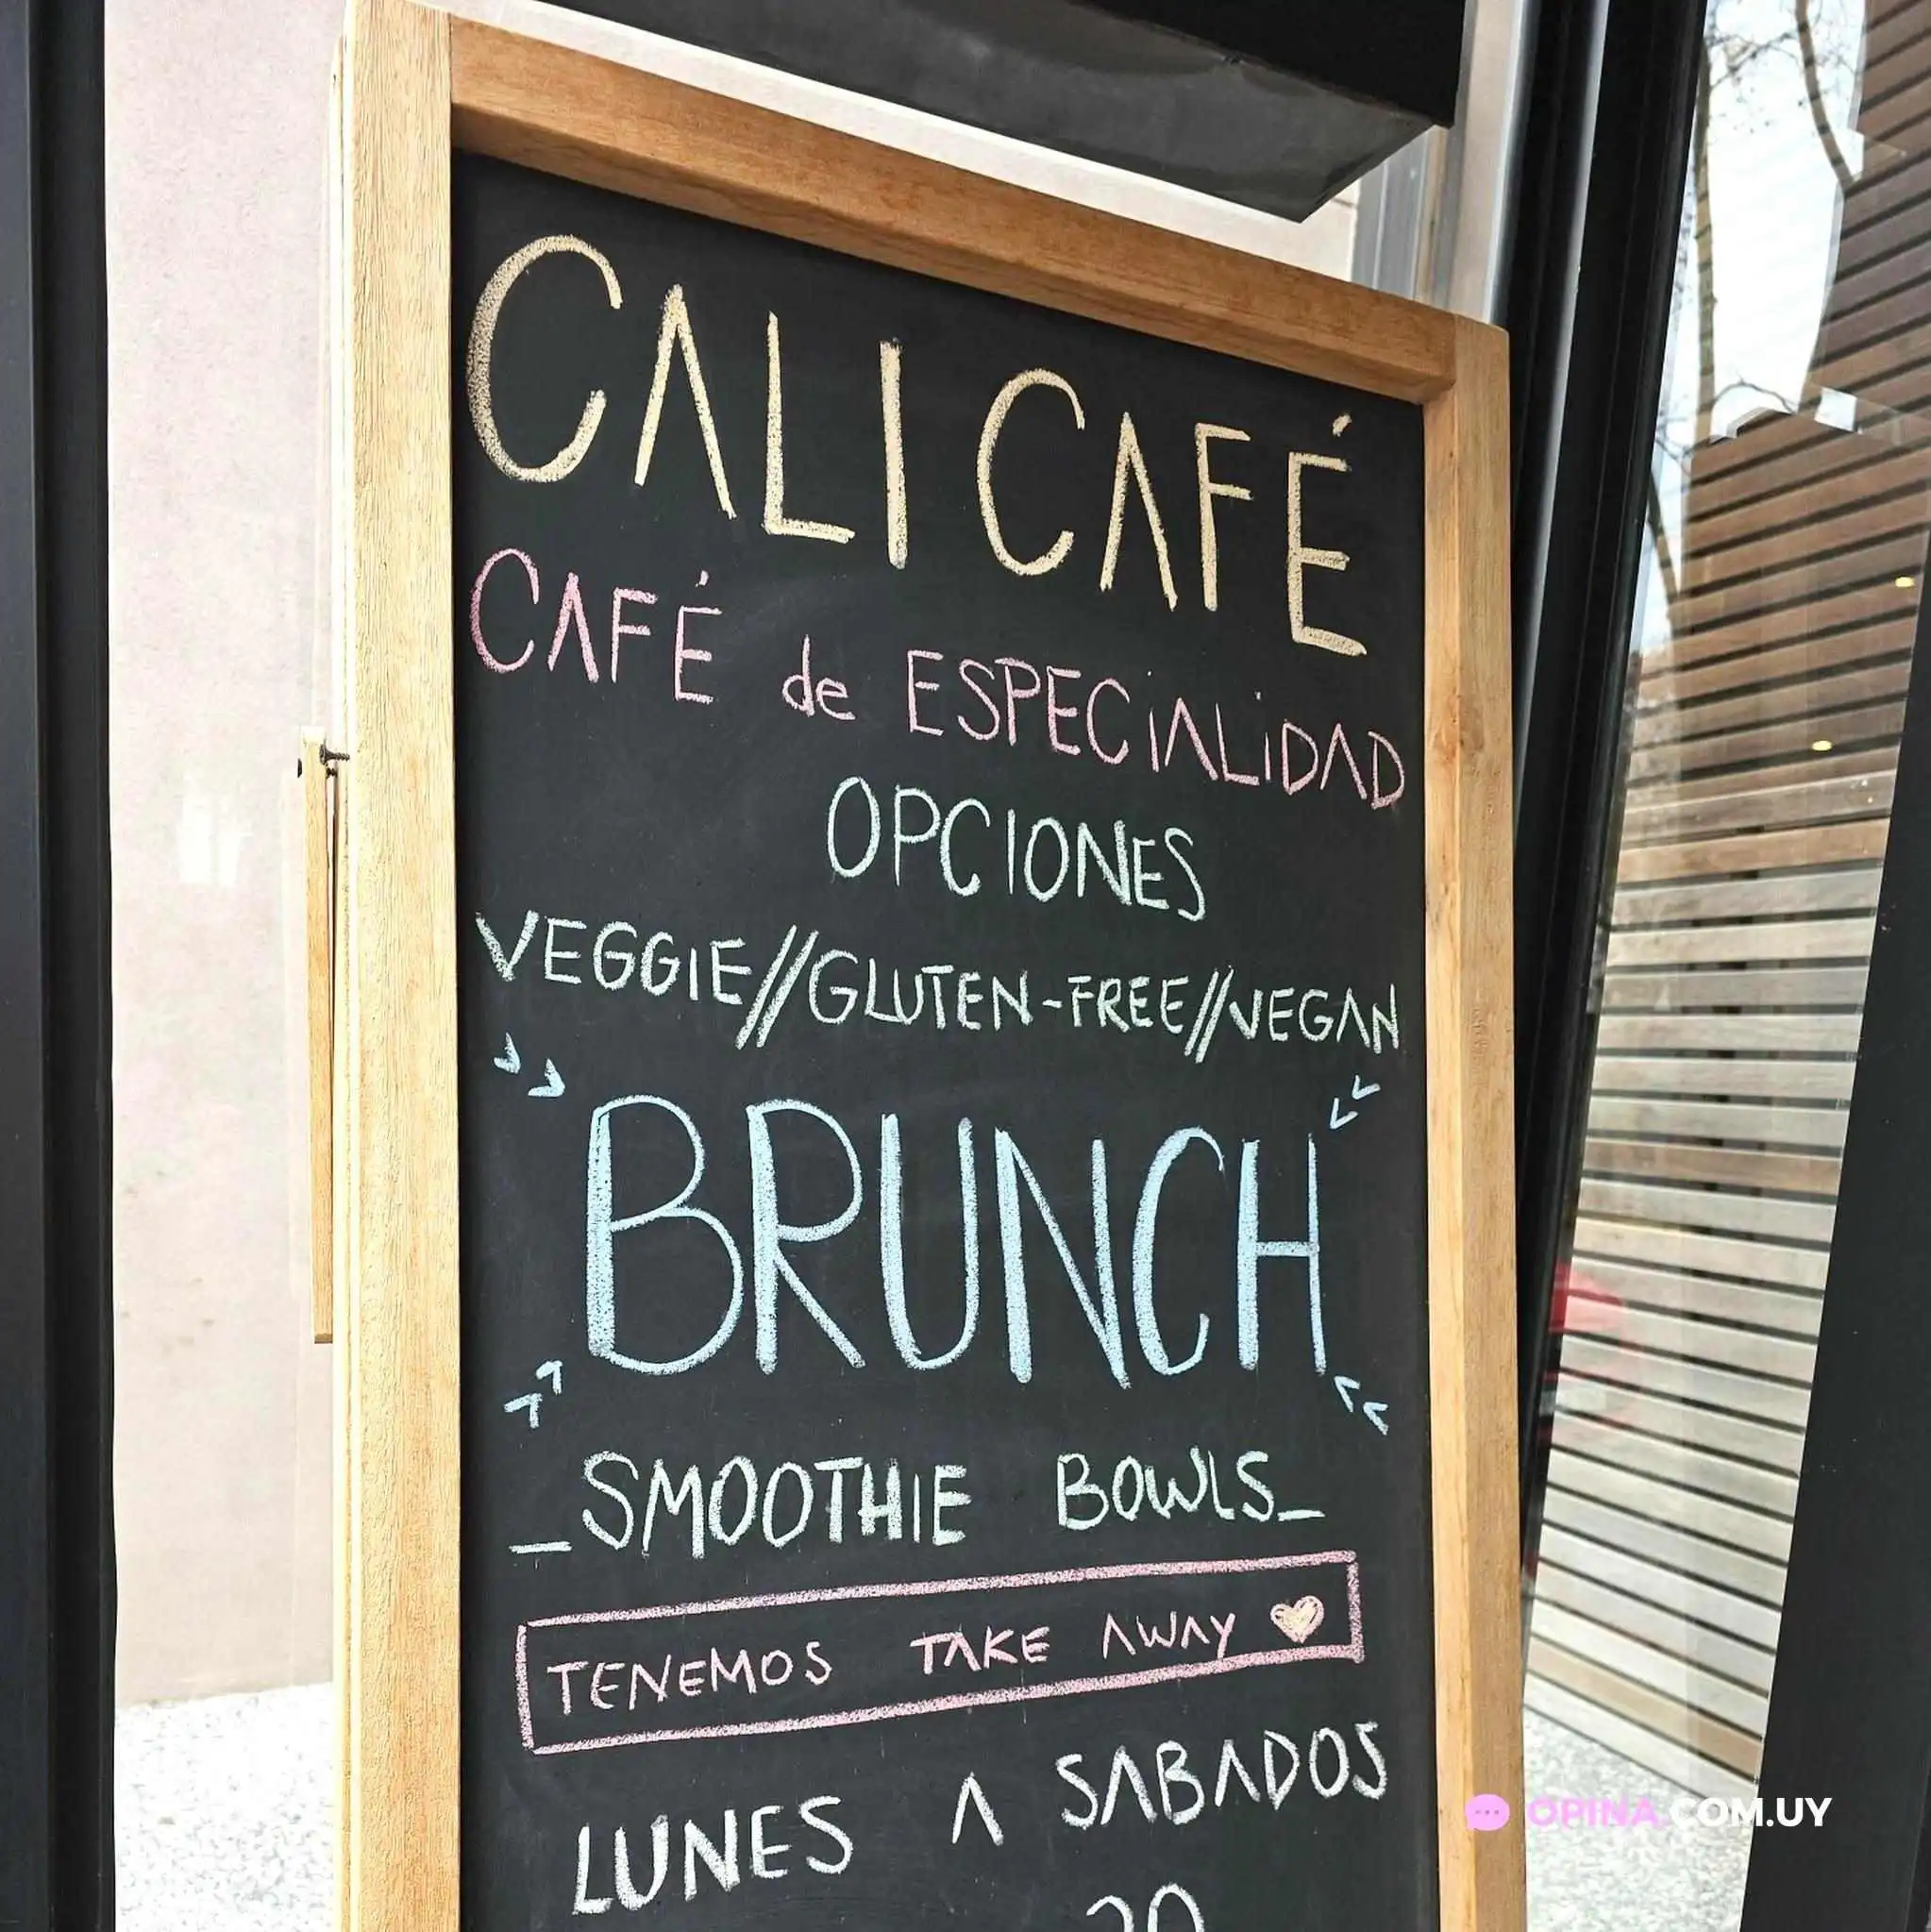 CALI CAFÉ
CAFÉ de ESPECiALiDAD
OPCIONES
VEGGIE//GLUTEN-FREE//VEGAN
BRUNCH
_SMOOTHIE BOWLS_
TENEMOS TAKE AWAY
LUNES A SABADOS
OPINA.COM.UY